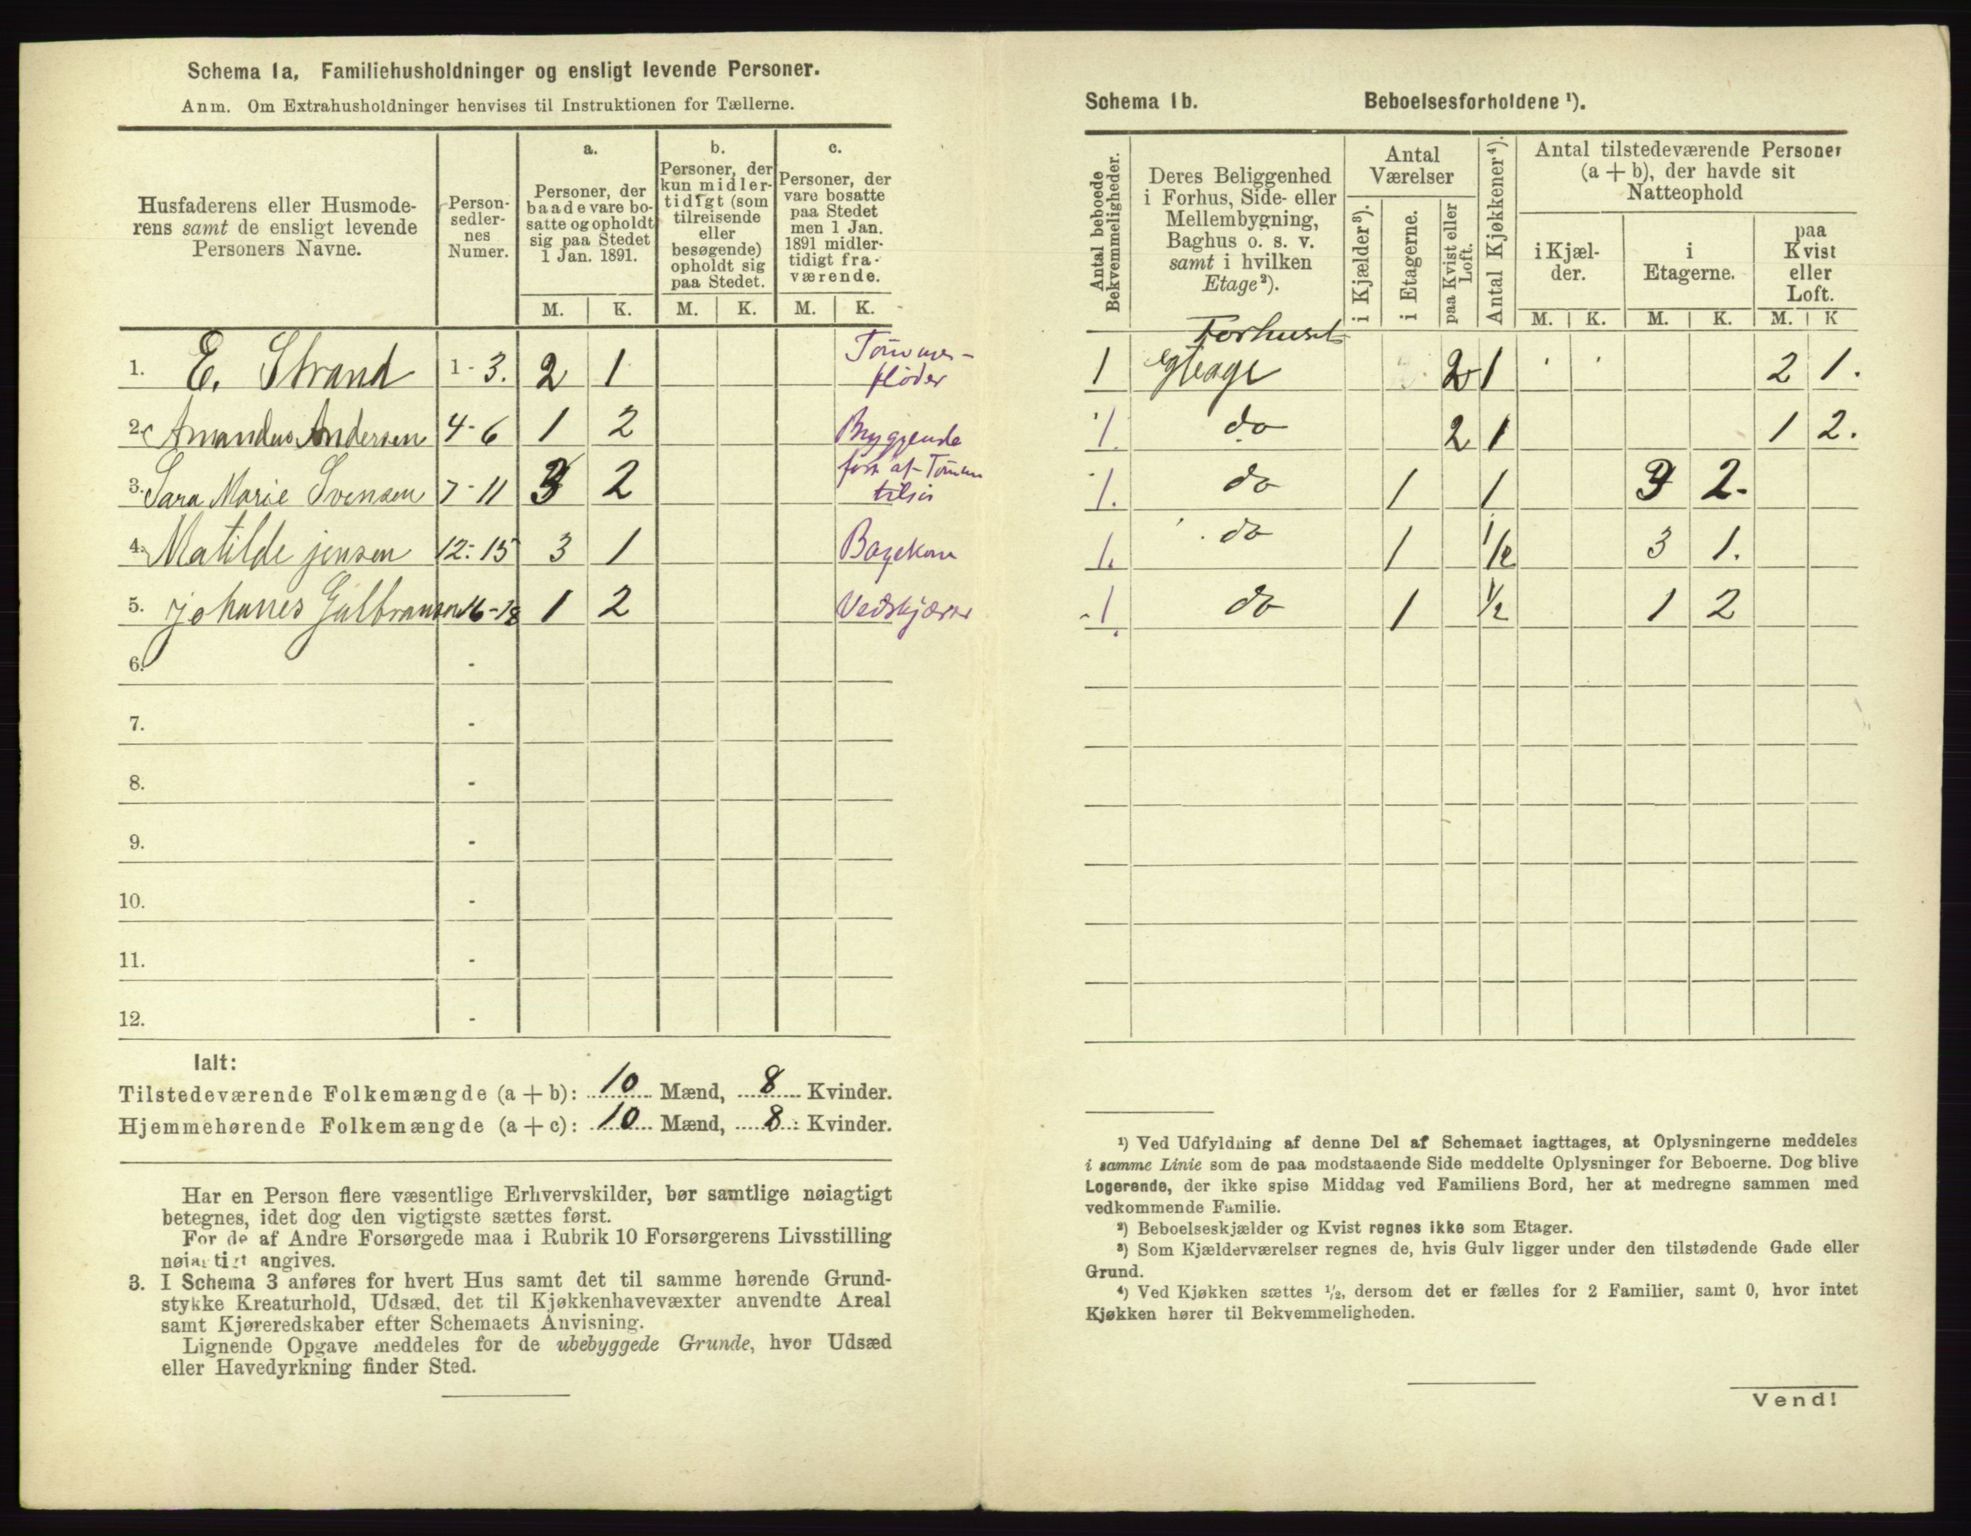 Schema 1a, Familiehusholdninger og ensligt levende Personer.
Anm. Om Extrahusholdninger henvises til Instruktionen for Tællerne.
Husfaderens eller Husmoderens samt de ensligt levende Personers Navne.
Personsedlernes Numer.
a. Personer, der baade vare bosatte og opholdt sig paa Stedet 1 Jan. 1891.
b. Personer, der kun midlertidigt (som tilreisende eller besøgende) opholdt sig paa Stedet.
c. Personer, der vare bosatte paa Stedet men 1 Jan. 1891 midlertidigt fraværende.
M. K. M. K. M. K.
1. E. Strand 1-3. 2 1 Tømmerfløder
2. Amandus Andersen 4-6 1 2 Bryggende
3. Sara Marie Svensen 7-11 3 2
4. Matilde jensen 12-15 3 1 Bagekone
5. johanes Gulbransen 16-18 1 2 Vedskjærer
6. -
7. -
8. -
9. -
10. -
11. -
12. -
Ialt:
Tilstedeværende Folkemængde (a + b): 10 Mænd, 8 Kvinder.
Hjemmehørende Folkemængde (a + c): 10 Mænd, 8 Kvinder.
Har en Person flere væsentlige Erhvervskilder, bør samtlige nøiagtigt
betegnes, idet dog den vigtigste sættes først.
For de af Andre Forsørgede maa i Rubrik 10 Forsørgerens Livsstilling
nøiagtigt angives.
3. I Schema 3 anføres for hvert Hus samt det til samme hørende Grund-
stykke Kreaturhold, Udsæd, det til Kjøkkenhavevæxter anvendte Areal
samt Kjøreredskaber efter Schemaets Anvisning.
Lignende Opgave meddeles for de ubebyggede Grunde, hvor Udsæd
eller Havedyrkning finder Sted.
Schema 1b. Beboelsesforholdene ¹).
Antal beboede Bekvemmeligheder.
Deres Beliggenhed i Forhus, Side- eller Mellembygning, Baghus o. s. v. samt i hvilken Etage²).
Antal Værelser
i Kjælder³).
i Etagerne.
paa Kvist eller Loft.
Antal Kjøkkener⁴).
Antal tilstedeværende Personer (a + b), der havde sit Natteophold
i Kjælder.
i Etagerne.
paa Kvist eller Loft.
M. K. M. K. M. K
Forhuset
1 2 1 2 1.
1. do 2 1 1 2.
1. do 1 1 3 2.
1. do 1 1/2 3 1.
1. do 1 1/2 1 2
¹) Ved Udfyldning af denne Del af Schemaet iagttages, at Oplysningerne meddeles
i samme Linie som de paa modstaaende Side meddelte Oplysninger for Beboerne. Dog blive
Logerende, der ikke spise Middag ved Familiens Bord, her at medregne sammen med
vedkommende Familie.
²) Beboelseskjælder og Kvist regnes ikke som Etager.
³) Som Kjælderværelser regnes de, hvis Gulv ligger under den tilstødende Gade eller
Grund.
⁴) Ved Kjøkken sættes 1/2, dersom det er fælles for 2 Familier, samt 0, hvor intet
Kjøkken hører til Bekvemmeligheden.
Vend!